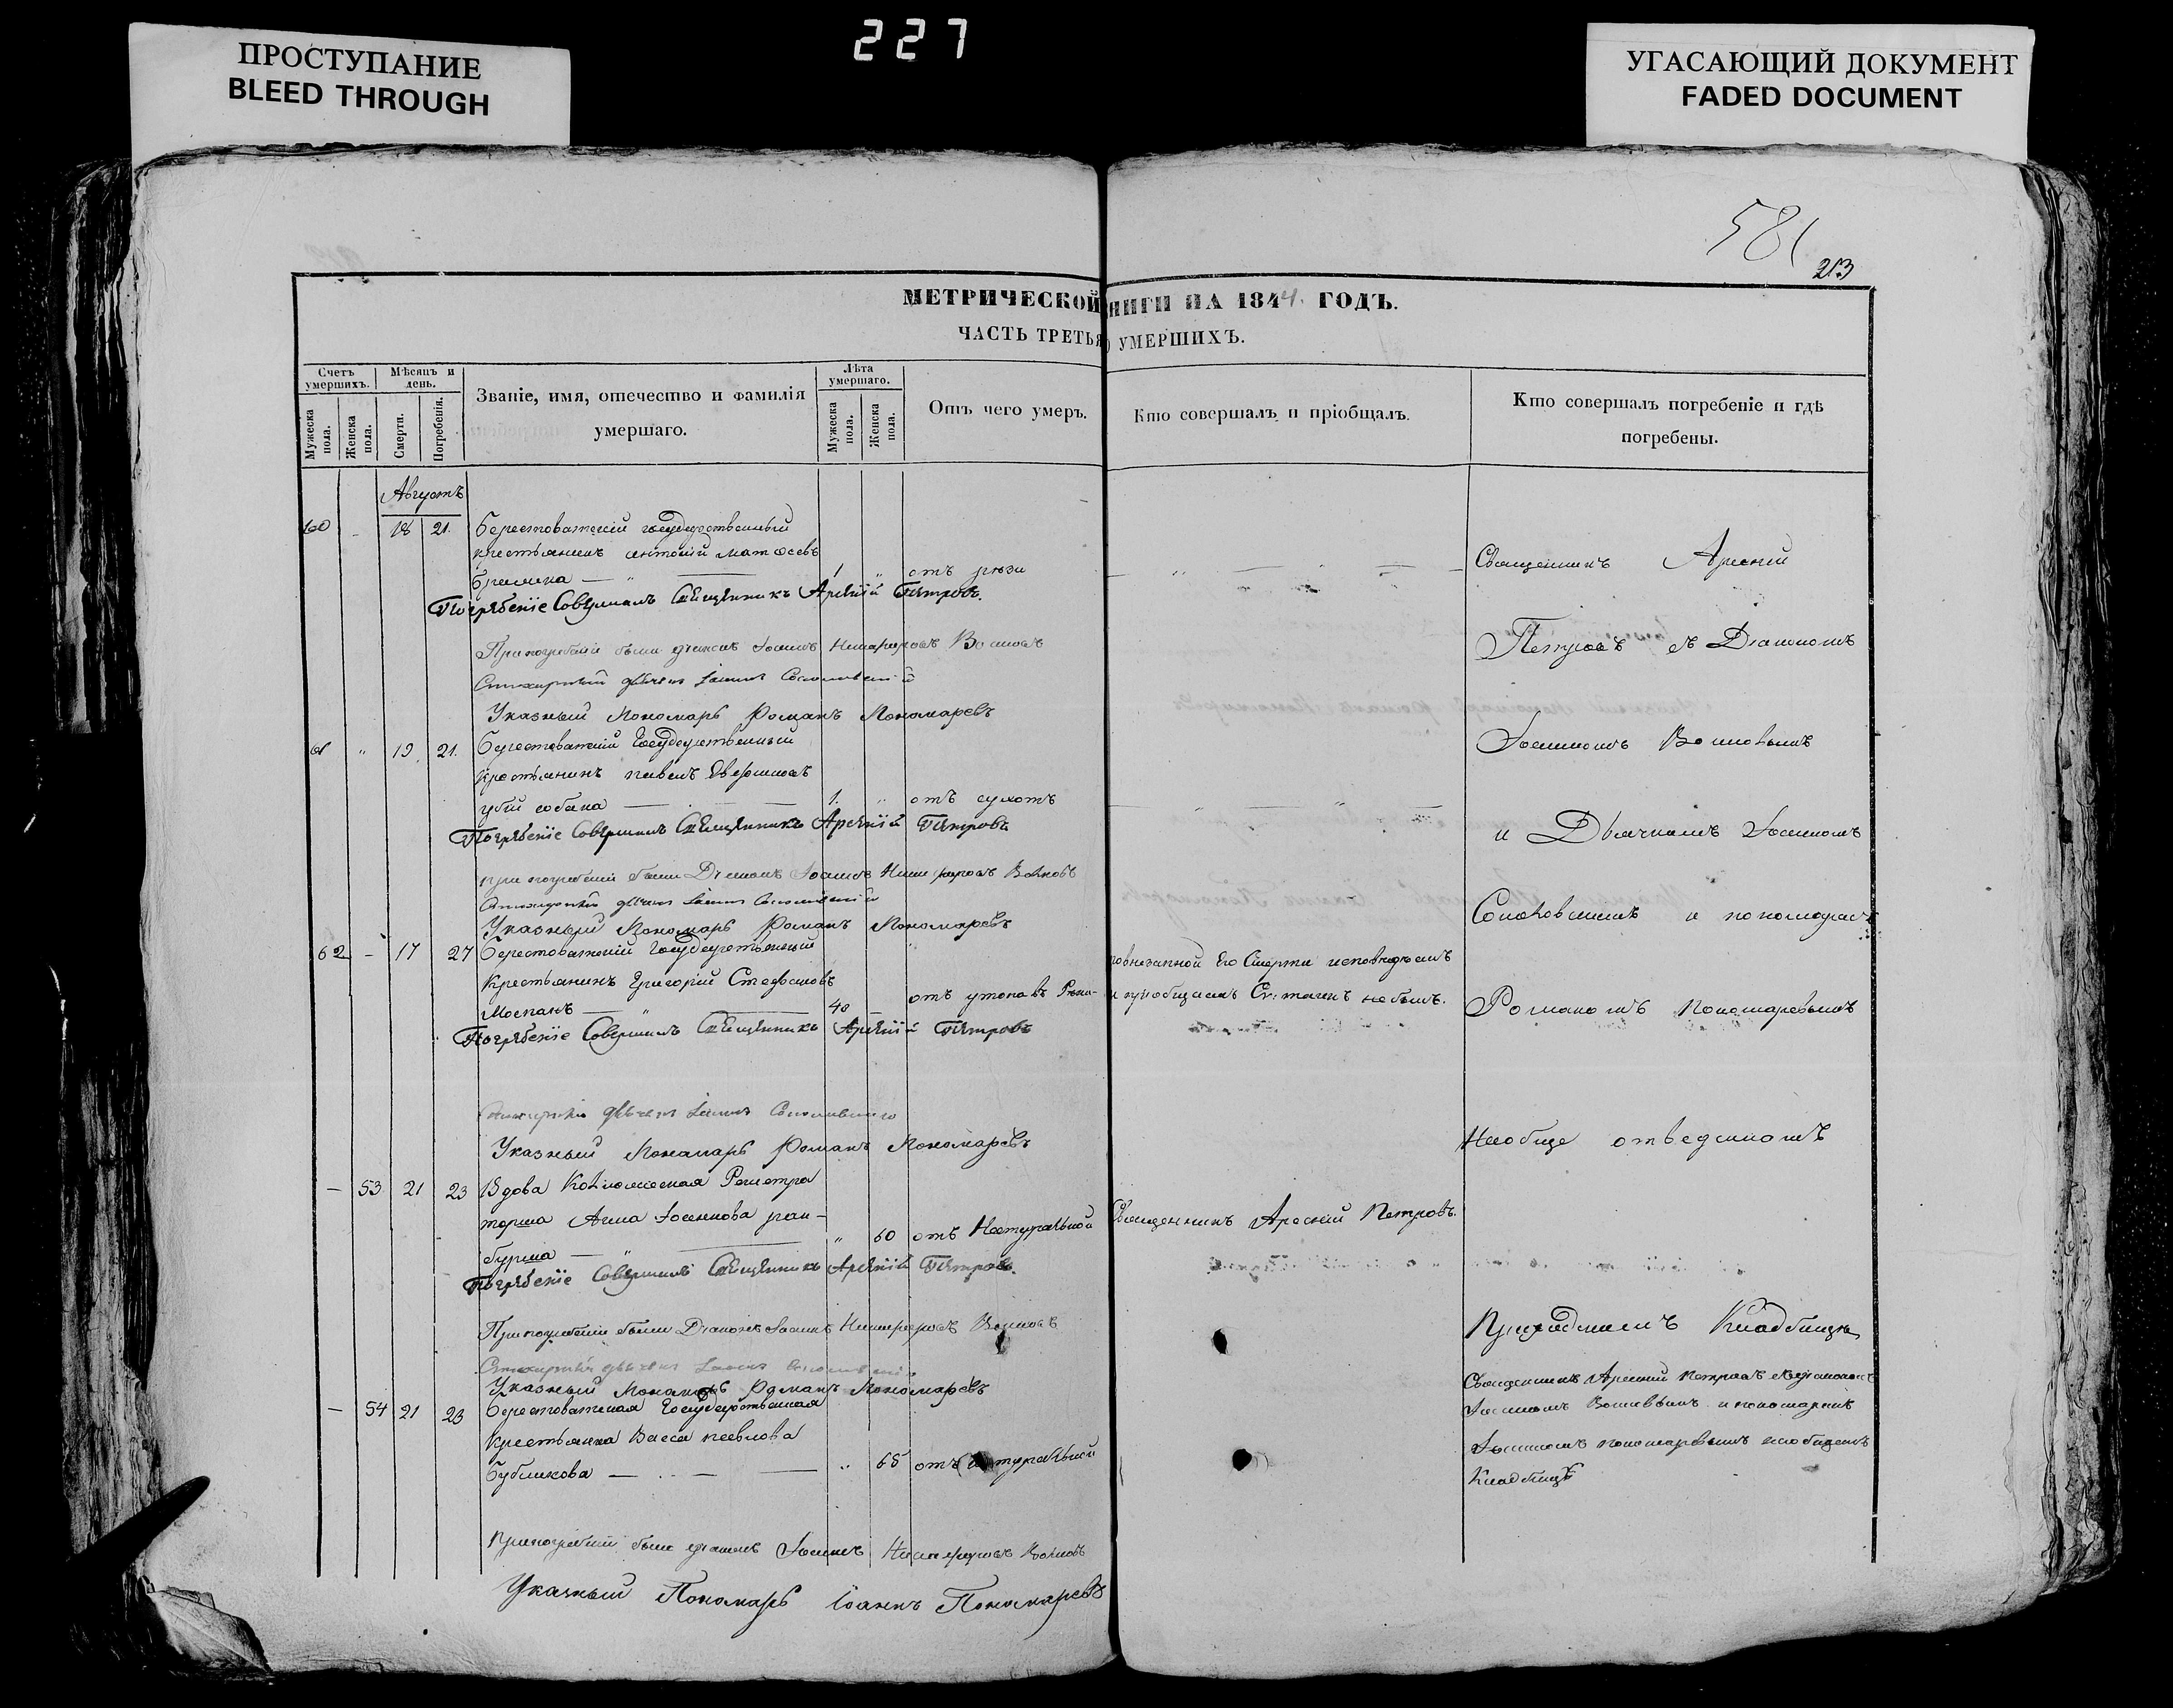 227
ПРОСТУПАНИЕ
BLEED THROUGH
УГАСАЮЩИЙ ДОКУМЕНТ
FADED DOCUMENT
581
213
МЕТРИЧЕСКОЙ НИГИ НА 1844. ГОДЪ.
ЧАСТЬ ТРЕТЬЯ УМЕРШИХЪ.
Счетъ умершихъ.
Мужеска пола.
Женска пола.
Мѣсяцъ и день.
Смерти.
Погребенія.
Званіе, имя, отечество и фамилія умершаго.
Лѣта умершаго.
Мужеска пола.
Женска пола.
Отъ чего умеръ.
Кто совершалъ и пріобщалъ.
Кто совершалъ погребеніе и гдѣ погребены.
Августъ
60 - 18 21. Берестоватскій государственный
крестьянинъ Антоній Матѳеевъ
1 " отъ рѣзи
Погребеніе Совершалъ Священникъ Арсеній Петровъ.
При погребеніи были діаконъ Іоаннъ Никифоровъ Волковъ
Стихарный дьячекъ Іоаннъ
Указный Пономарь Романъ Пономаревъ
61 " 19 21. Берестоватскій Государственный
крестьянинъ Павелъ
убій собака 1. " отъ сухотъ
Погребеніе Совершалъ Священникъ Арсеній Петровъ
При погребеніи были Діаконъ Іоаннъ Никифоровъ Волковъ
Стихарный дьячекъ Іоаннъ
Указный Пономарь Романъ Пономаревъ
62 - 17 27 Берестоватскій Государственный
Крестьянинъ Григорій Стефановъ
Моспанъ 40 - отъ утопа въ Рѣкѣ
по внезапной Его Смерти исповѣдуемъ
и пріобщаемъ Св. таинъ небылъ.
Погребеніе Совершалъ Священникъ Арсеній Петровъ
Стихарный дьячекъ Іоаннъ
Указный Пономарь Романъ Пономаревъ
- 53 21 23 Вдова Колежская Регистра
торша Анна Іосифова ран-
бурша " 60 отъ Натуральной
Священникъ Арсеній Петровъ.
Погребеніе Совершалъ Священникъ Арсеній Петровъ.
При погребеніи были Діаконъ Іоаннъ Никифоровъ Волковъ
Стихарный дьячекъ Іоаннъ
Указный Пономарь Романъ Пономаревъ
- 54 21 23 Берестоватская Государственная
Крестьянка Васса Павлова
Бубликова " 65 отъ натуральной
При погребеніи были діаконъ Іоаннъ Никифоровъ Волковъ
Указный Пономарь Іоаннъ Пономаревъ
Священникъ Арсеній
Петровъ съ Діакономъ
Іоанномъ Волковымъ
и Дьячкомъ Іоанномъ
и пономаремъ
Романомъ Пономаревымъ
Наобще отведенномъ
Приходскомъ Кладбищѣ
Священникъ Арсеній Петровъ съ діакономъ
Іоанномъ Волковымъ и пономаремъ
Іоанномъ Пономаревымъ наобщемъ
Кладбищѣ